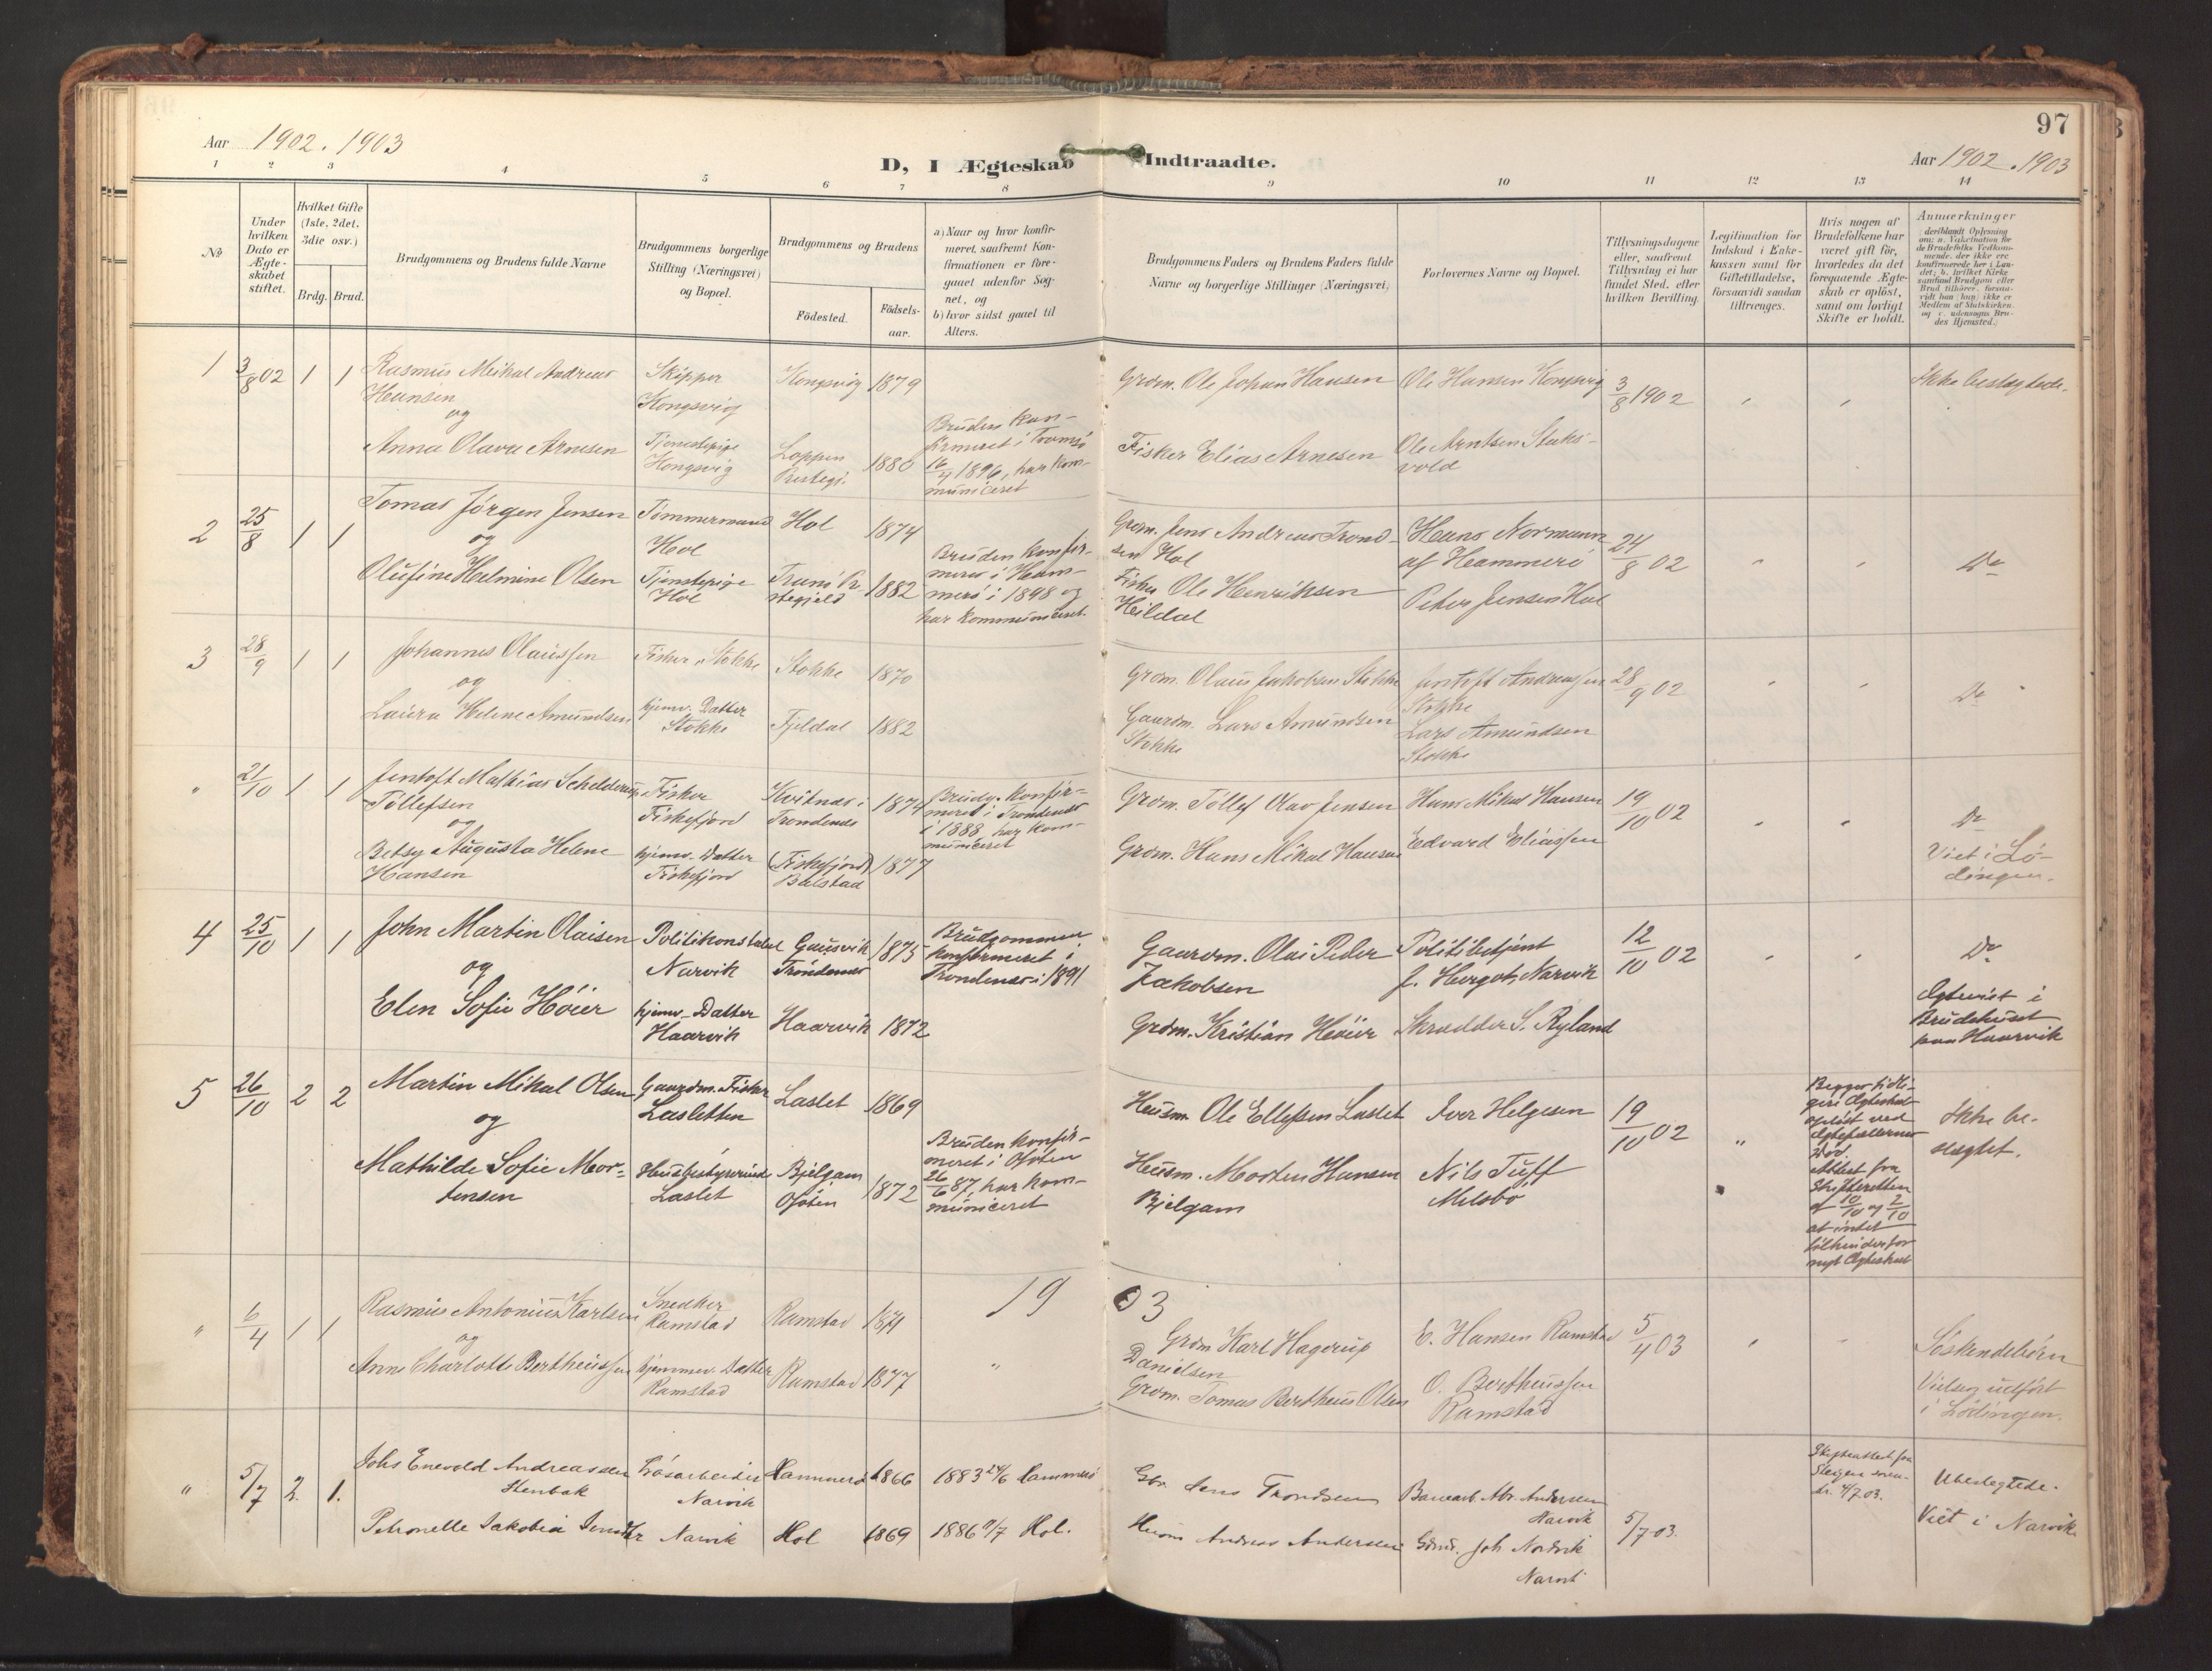 97
Aar 1902. 1903
D, I Ægteskab Indtraadte.
Aar 1902. 1903
1 2 3 4 5 6 7 8 9 10 11 12 13 14
№
Under
hvilken
Dato er
Ægte-
skabet
stiftet.
Hvilket Gifte
(1ste, 2det,
3die osv.)
Brdg. Brud.
Brudgommens og Brudens fulde Navne
Brudgommens borgerlige
Stilling (Næringsvei)
og Bopæl.
Brudgommens og Brudens
Fødested.
Fødsels-
aar.
a) Naar og hvor konfir-
meret, saafremt Kon-
firmationen er fore-
gaaet udenfor Sog-
net, og
b) hvor sidst gaaet til
Alters.
Brudgommens Faders og Brudens Faders fulde
Navne og borgerlige Stillinger (Næringsvei)
Forlovernes Navne og Bopæl.
Tillysningsdagene
eller, saafremt
Tillysning ei har
fundet Sted, efter
hvilken Bevilling.
Legitimation for
Indskud i Enke-
kassen samt for
Giftetilladelse,
forsaavidt saadan
tiltrænges.
Hvis nogen af
Brudefolkene har
været gift før,
hvorledes da det
foregaaende Ægte-
skab er opløst,
samt om lovligt
Skifte er holdt.
Anmærkninger
(deriblandt Oplysning
om: a. Vakcination for
de Brudefolks Vedkom-
mende, der ikke ere
konfirmerede her i Lan-
det; b. hvilket Kirke-
samfund Brudgom eller
Brud tilhører, forsaa-
vidt han (hun) ikke er
Medlem af Statskirken,
og c. udensogns Bru-
des Hjemsted.)
1 3/8 02 1 1
Rasmus Meikal Andreas
Hansen
og
Anna Olava Arnesen
Skipper
Kongsvig
Tjenestepige
Kongsvig
Kongsvig 1879
Loppen
Prestegj. 1880
Bruden kon-
firmeret i Tromsø
16/4 1896, har kom-
municeret
Grdm. Ole Johan Hansen
Fisker Elias Arnesen
Ole Hansen Kongsvig
Ole Arntsen Staks-
vold
3/8 1902
Ikke beslægtede.
2 25/8 1 1
Tomas Jørgen Jensen
og
Olufine Helmine Olsen
Tømmermand
Hol
Tjenestepige
Hol
Hol 1874
Tranø Pr
stegjeld 1882
Bruden konfir-
meres i Ham-
merø i 1898 og
har kommuniceret.
Grdm. Jens Andreas Trond-
sen Hol
Fisker Ole Henriksen
Heildal
Hans Normann
af Hammerø
Peter Jensen Hol
24/8 02
Do
3 28/9 1 1
Johannes Olaussen
og
Laura Helene Amundsen
Fisker, Stokke
hjemv. Datter
Stokke
Stokke 1870
Fjeldal 1882
Grdm. Olaus Jakobsen Stokke
Gaardm. Lars Amundsen
Stokke
Jentoft Andreassen
Stokke
Lars Amundsen
Stokke
28/9 02
Do
" 21/10 1 1
Jentoft Mathias Schelderup
Tollefsen
og
Betsy Augusta Helene
Hansen
Fisker
Fiskefjord
hjemv. Datter
Fiskefjord
Kvitnes i
Trondenes 1874
(Fiskefjord)
Balstad 1877
Brudg. konfir-
meret i Trondenes
i 1888, har kom-
municeret
Grdm. Tollef Olav Jensen
Grdm. Hans Mikal Hansen
Hans Mikal Hansen
Edvard Eliassen
19/10 02
Do
Viet i Lø-
dingen.
4 25/10 1 1
John Martin Olaisen
og
Elen Sofie Høier
Politikonstabel
Narvik
hjemv. Datter
Haarvik
Gausvik
Trondenes 1875
Haarvik 1872
Brudgommen
konfirmeret i
Trondenes i 1891
Gaardm. Olai Peder
Jakobsen
Grdm. Kristian Høier
Politibetjent
J. Hergot, Narvik
Skrædder S. Ryland
12/10 02
Do
Ægteviet i
Brudehuset
paa Haarvik
5 26/10 2 2
Martin Mikal Olsen
og
Mathilde Sofie Mor-
tensen
Gaardm. Fisker
Lasletten
Husbestyrerinde
Laslet
Laslet 1869
Bjelgam
Ofoten 1872
Bruden konfir-
meret i Ofoten
26/6 87, har kom-
municeret
Husm. Ole Ellefsen Laslet
Husm. Morten Hansen
Bjelgam
Iver Helgesen
Nils Tuff
Melsbø
19/10 02
Begges tidli-
gere Ægteskab
opløst ved
Ægtefællernes
Død.
Attest fra
Skifteretten
af 10/10 og 2/10
at intet
til hinder for
nyt Ægteskab
Ikke be-
slægtet.
1903
" 6/4 1 1
Rasmus Antonius Karlsen
og
Anne Charlotte Bertheussen
Snedker
Ramstad
hjemmev. Datter
Ramstad
Ramstad 1871
Ramstad 1877
"
Grdm Karl Hagerup
Danielsen
Grdm. Tomas Bertheus Olsen
E. Hansen Ramstad
O. Bertheussen
Ramstad
5/4 03
Søskendebørn
Vielsen udført
i Lødingen.
" 5/7 2. 1.
Johs Enevold Andreassen
Stenbak
Petronelle Jakobia Jens
Løsarbeider
Narvik
Narvik
Hammerø 1866 1883 24/6 Hammerø
Hol 1869 1886 11/7 Hol.
Gbr. Jens Trondsen
Husm Andreas Andersen
Banearb. Abr. Andersen
Narvik
Joh Nordvik
Narvik
5/7 03.
Skifteattest fra
Steigen soren-
4/7 03.
Ubeslegtede.
Viet i Narvik